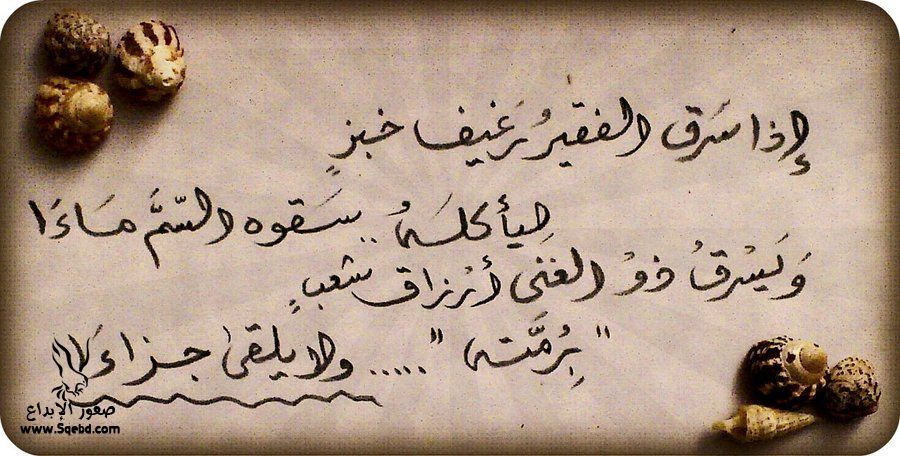 إذا سَرق الفقيرُ رَغيفا خبزٍ
ليأكلَهُ .. سَقوه السّمَّ مَاءَا
وَيَسْرقُ ذوْ الغنى أرْزاق شعبٍ
"بِرُمَّته" ..... ولا يلقىٰ جزاءَا
صقور الإبداع
www.Sqebd.com